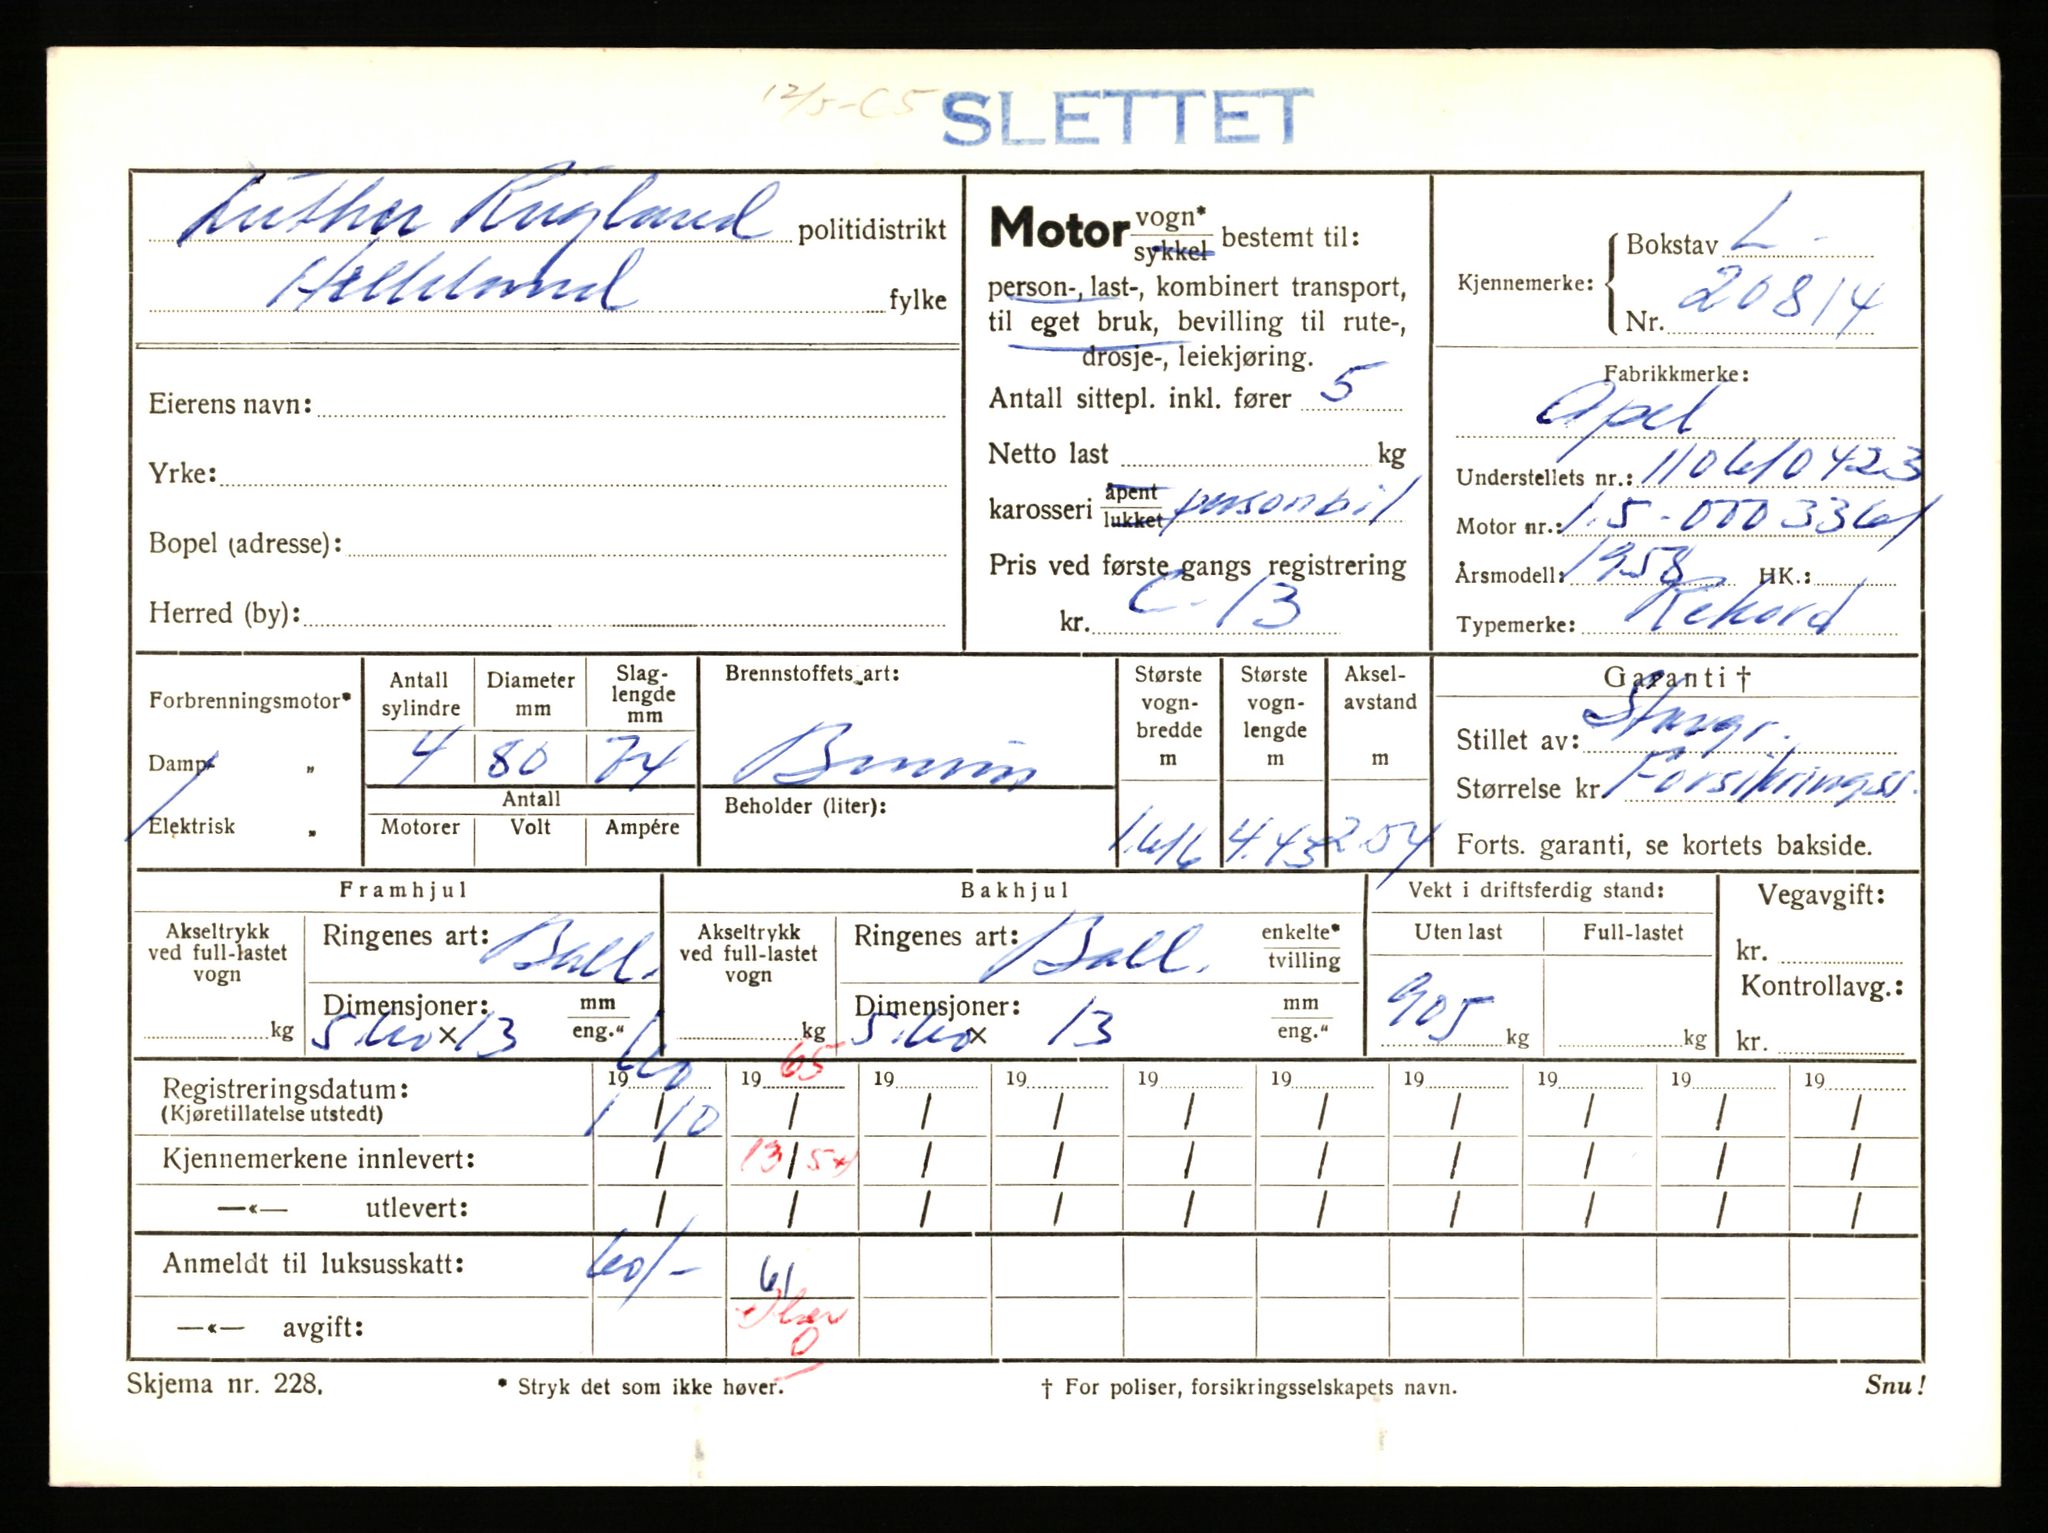 12/5-65 SLETTET
Luther Rugland politidistrikt
Helleland fylke
Eierens navn:
Yrke:
Bopel (adresse):
Herred (by):
Motor vogn* sykkel bestemt til:
person-, last-, kombinert transport,
til eget bruk, bevilling til rute-,
drosje-, leiekjøring.
Antall sittepl. inkl. fører 5
Netto last kg
karosseri åpent lukket personbil
Pris ved første gangs registrering
kr. C-13
Kjennemerke: Bokstav L -
Nr. 20814
Fabrikkmerke:
Opel
Understellets nr.: 110610423
Motor nr.: 1.5-0003361
Årsmodell: 1958 HK.:
Typemerke: Rekord
Forbrenningsmotor*
Damp- „
Elektrisk „
Antall sylindre Diameter mm Slag-lengde mm
4 80 74
Antall
Motorer Volt Ampére
Brennstoffets art:
Bensin
Beholder (liter):
Største vogn-bredde m Største vogn-lengde m Aksel-avstand m
1.616 4.43 2.54
Garanti †
Stillet av: Stavgr.
Størrelse kr. Forsikringss.
Forts. garanti, se kortets bakside.
Framhjul
Akseltrykk ved full-lastet vogn
kg
Ringenes art: Ball.
Dimensjoner: mm eng."
5.60 x 13
Bakhjul
Akseltrykk ved full-lastet vogn
kg
Ringenes art: Ball. enkelte* tvilling
Dimensjoner: mm eng."
5.60 x 13
Vekt i driftsferdig stand:
Uten last Full-lastet
905 kg kg
Vegavgift:
kr.
Kontrollavg.:
kr.
Registreringsdatum: 19 60 19 65 19 19 19 19 19 19 19 19
(Kjøretillatelse utstedt) 1/10 / / / / / / / / /
Kjennemerkene innlevert: / 13/5 / / / / / / / /
—«— utlevert: / / / / / / / / / /
Anmeldt til luksusskatt: 60/- 61
—«— avgift: 0
Skjema nr. 228. * Stryk det som ikke høver. † For poliser, forsikringsselskapets navn. Snu!